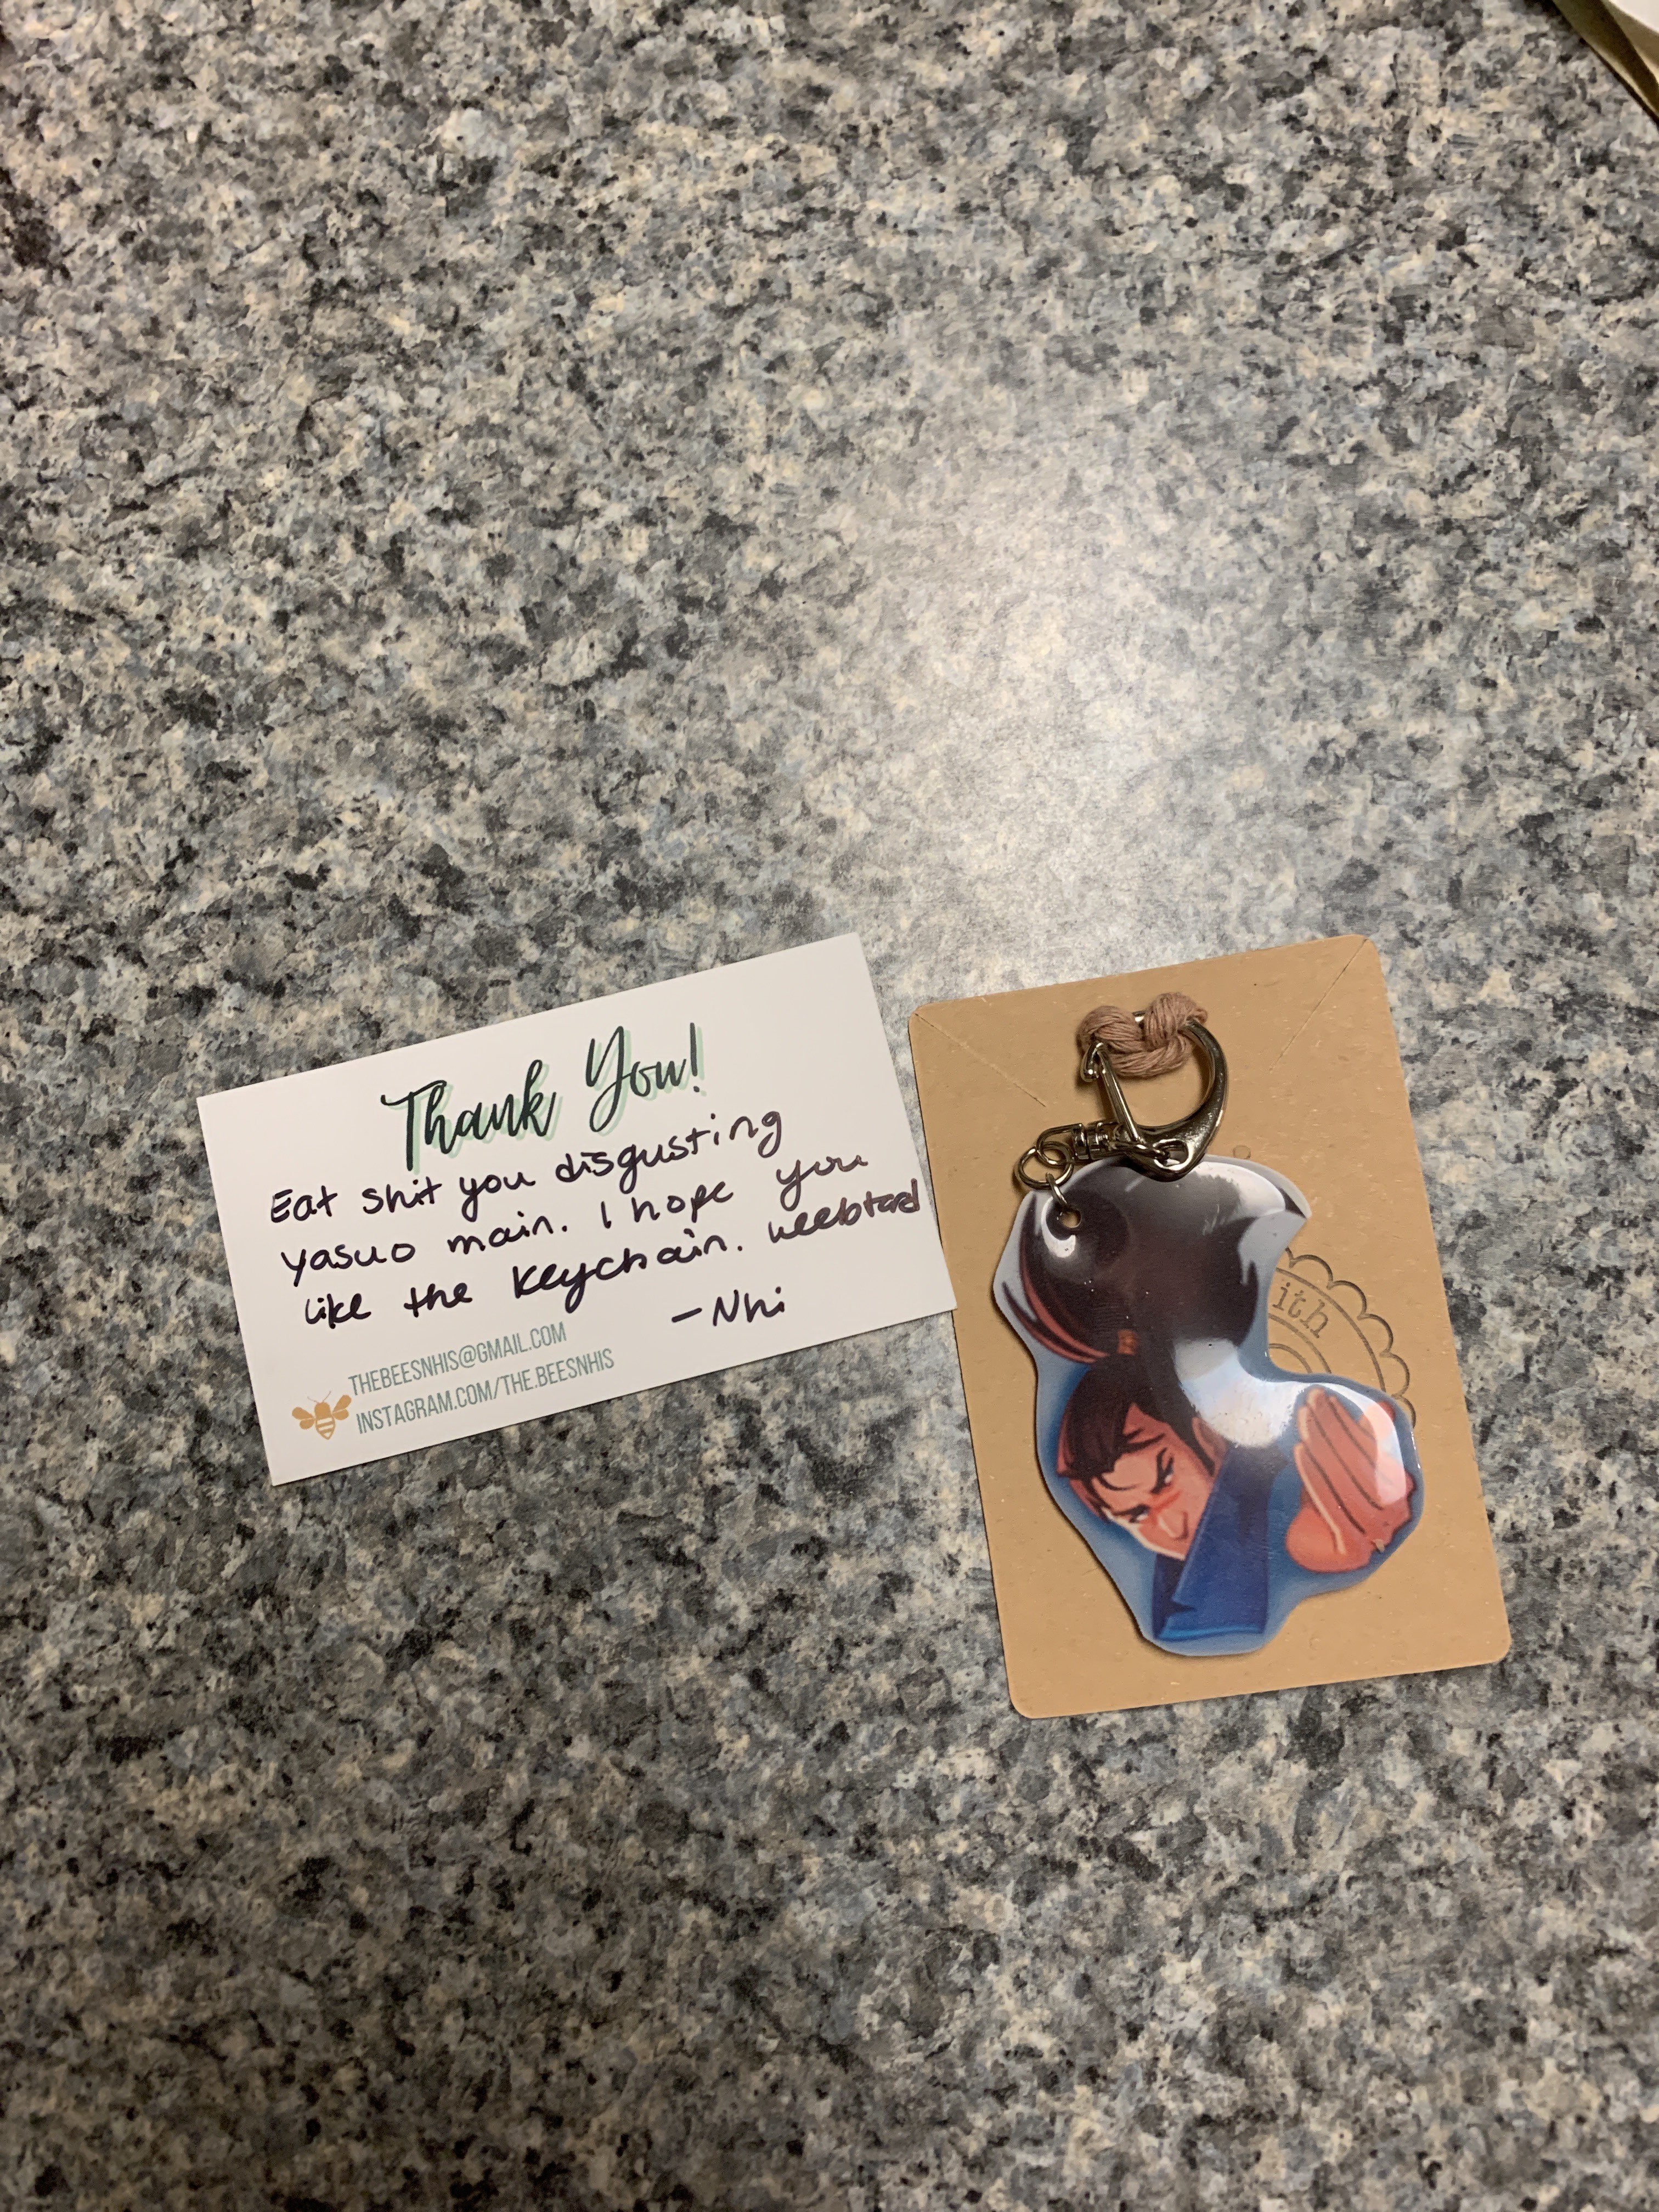 Thank You!
Eat shit you disgusting
yasuo main. I hope you
like the keychain. weebtard
-Nhi
THEBEESNHIS@GMAIL.COM
INSTAGRAM.COM/THE.BEESNHIS
ith